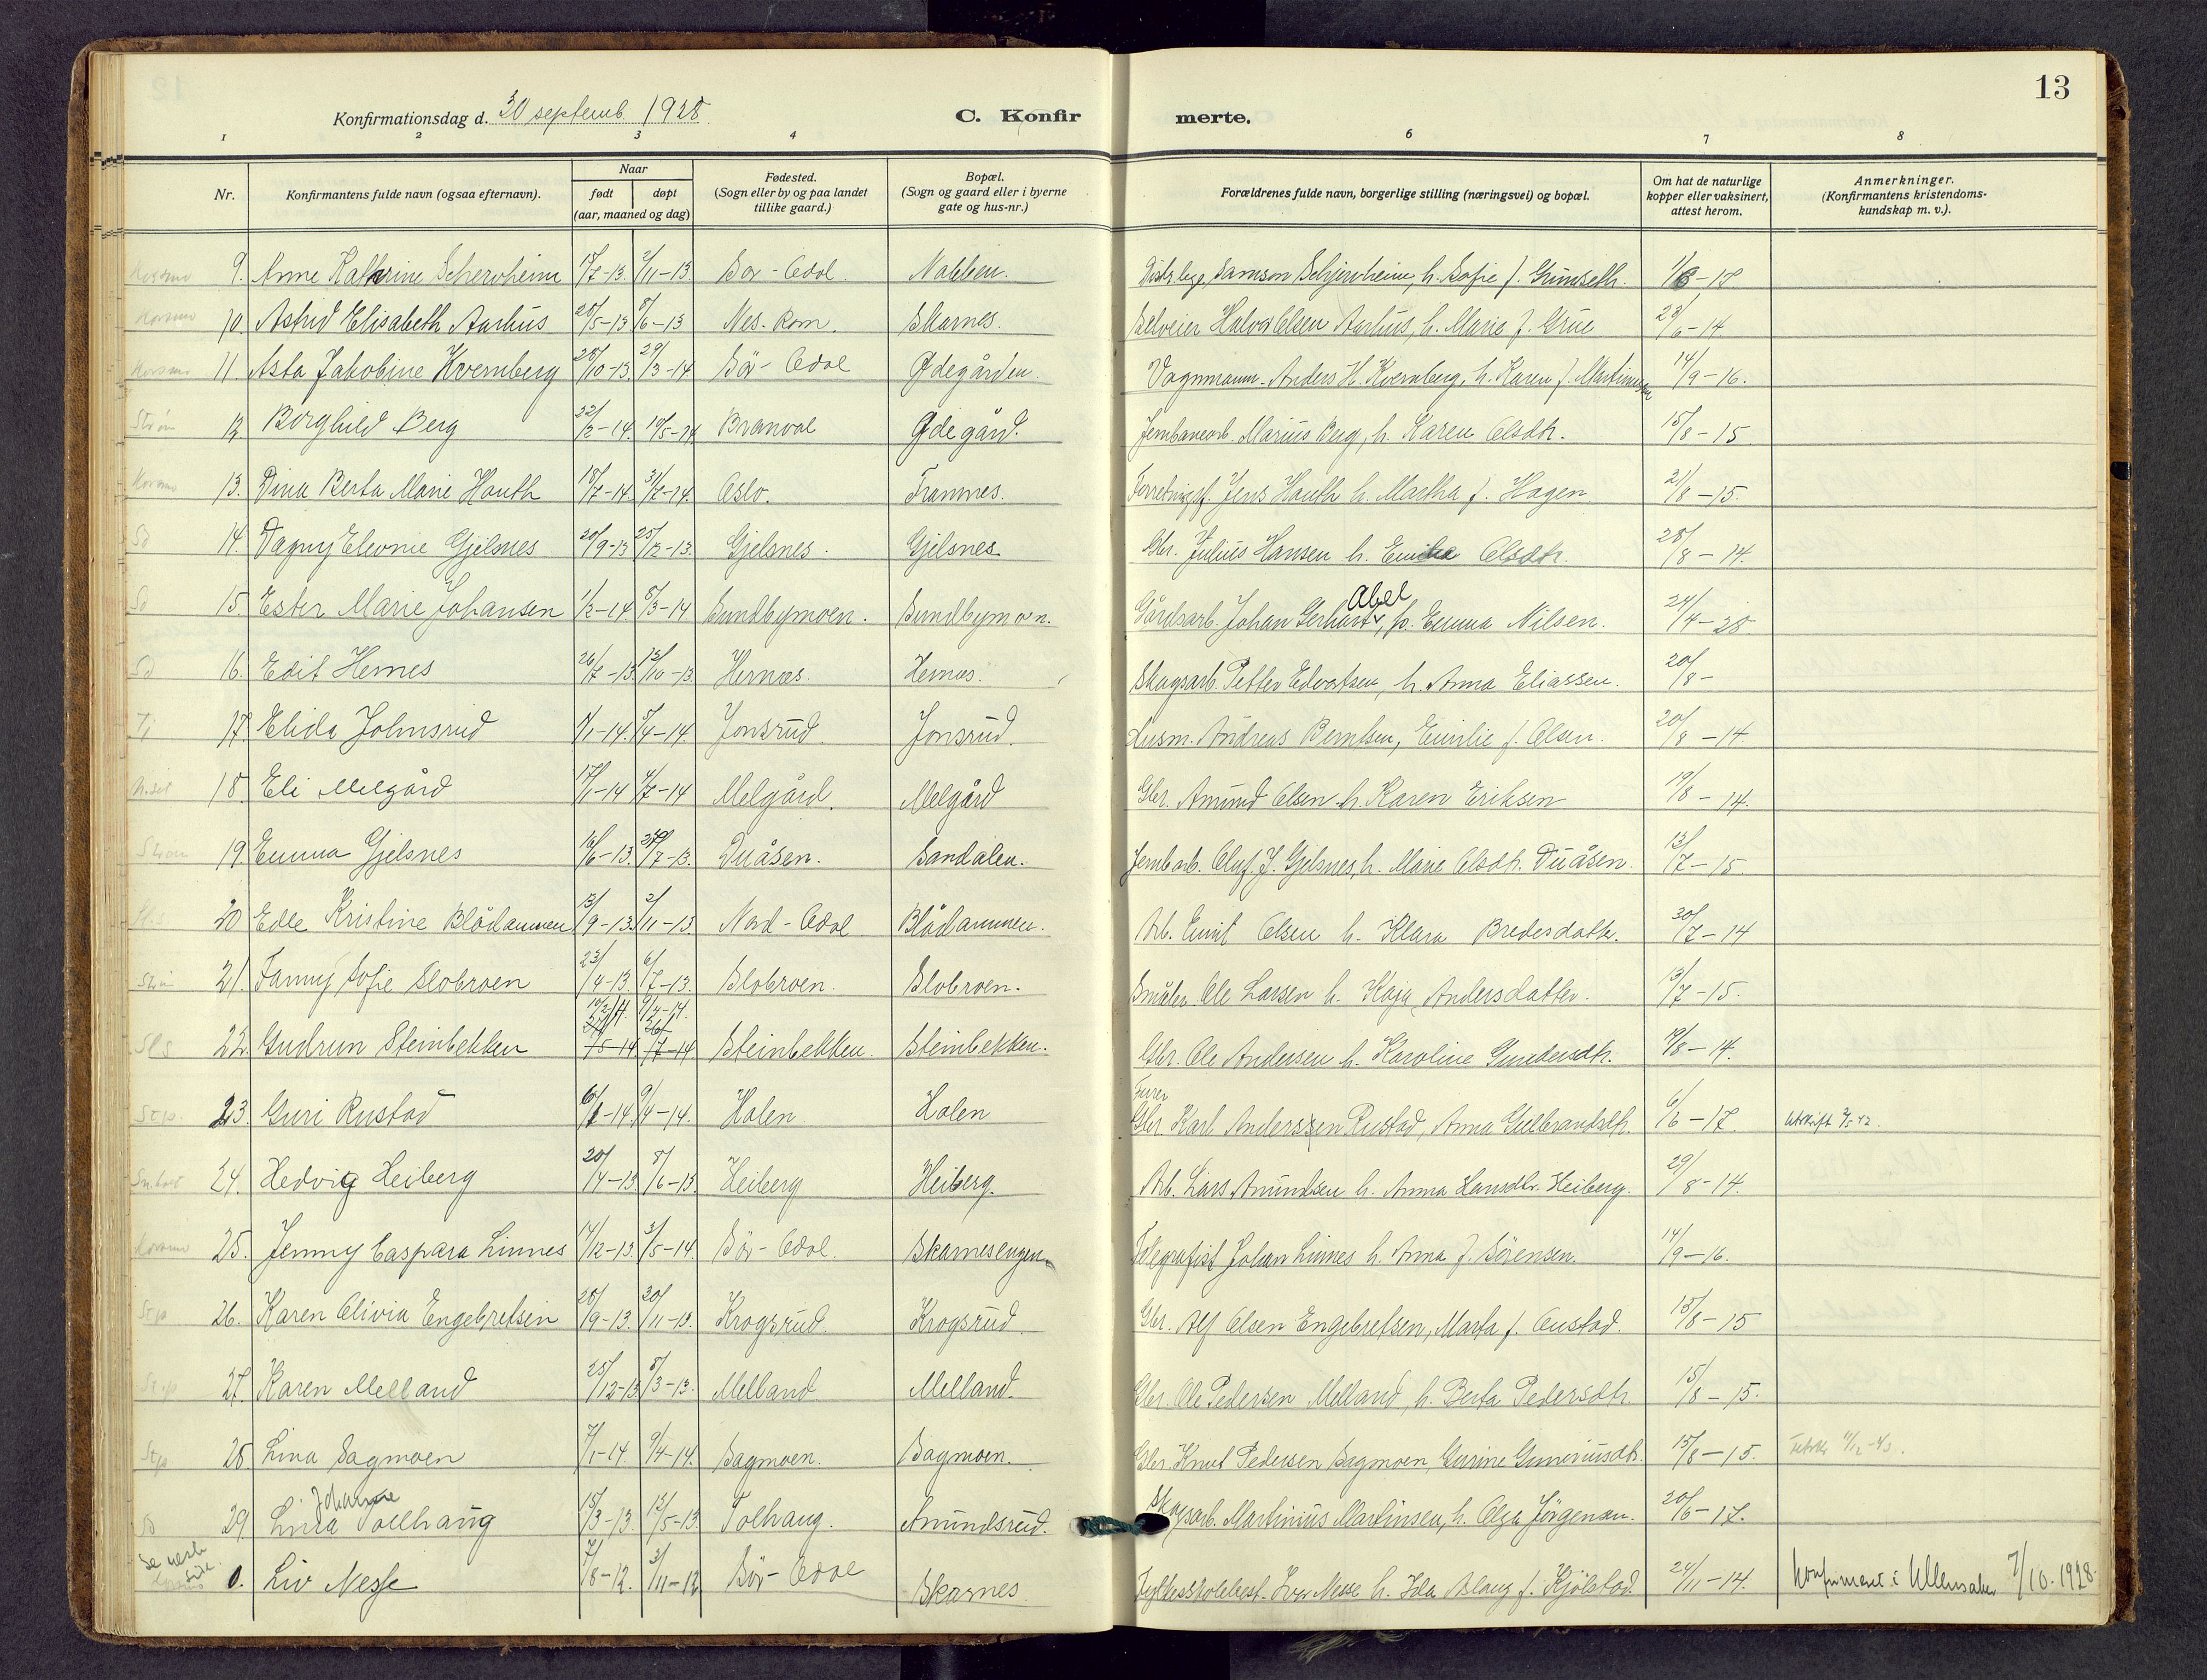 13
Konfirmationsdag d. 30 septemb. 1928
C. Konfirmerte.
1 2 3 4 6 7 8
Nr. Konfirmantens fulde navn (ogsaa efternavn). Naar født døpt (aar, maaned og dag) Fødested. (Sogn eller by og paa landet tillike gaard.) Bopæl. (Sogn og gaard eller i byerne gate og hus-nr.) Forældrenes fulde navn, borgerlige stilling (næringsvei) og bopæl. Om hat de naturlige kopper eller vaksinert, attest herom. Anmerkninger. (Konfirmantens kristendoms-kundskap m. v.).
Korsmo 9. Anne Kathrine Schervheim 18/7-13. 2/11-13. Sør-Odal. Nabben. Distr.lege Samson Schjervheim, h. Sofie f. Grimseth. 1/6-18
Korsmo 10. Astrid Elisabeth Aarhus 25/5-13 8/6-13 Nes. Rom. Skarnes. Selveier Halvor Olsen Aarhus, h. Marie f. Grue 23/6-14
Korsmo 11. Asta Jakobine Kvernberg 28/10-13. 29/3-14. Sør-Odal Ødegården. Vognmann Anders H. Kvernberg, h. Karen f. Martinsen 14/9-16.
Strøm 12. Borghild Berg 22/2-14. 10/5-14 Branval Ødegård. Jernbanearb. Marius Berg, h. Karen Olsdtr. 15/8-15
Korsmo 13. Dina Berta Marie Hauth 18/7-14. 31/7-14. Oslo. Framnes. Forretningsf. Jens Hauth h. Martha f. Hagen 21/8-15.
Sd 14. Dagny Eleonie Gjelsnes 20/9-13 25/12-13. Gjelsnes. Gjelsnes Gbr. Julius Hansen h. Emilie Olsdtr. 28/8-14.
Sd 15. Ester Marie Johansen 1/2-14. 8/3-14 Sundbymoen. Sundbymoen. Gårdsarb. Johan Gerhart Abel, h. Emma Nilsen. 24/4-28
Sd 16. Edit Hernes 26/7-13. 12/10-13. Hernæs. Hernæs. Skogsarb. Petter Edvartsen, h. Anna Eliassen. 20/8-
17. Elida Johnsrud 1/1-14. 5/4-14 Jonsrud. Jonsrud. Husm. Andreas Berntsen, Emilie f. Olsen. 20/8-14.
18. Eli Melgård 17/1-14 4/7-14 Melgård. Melgård Gbr. Amund Olsen h. Karen Eriksen 19/8-14.
Strøm 19. Emma Gjelsnes 16/6-13. 7-13. Duåsen. Sandalen. Jernb.arb. Oluf J. Gjelsnes, h. Marie Olsdtr. Duåsen. 12/7-15
20 Edle Kristine Blådammen 13/9-13. 2/11-13. Nord-Odal Blådammen. Arb. Emil Olsen h. Klara Bredesdatter. 30/7-14
Strøm 21. Fanny Sofie Slobroen 23/4-13. 6/7-13. Slobroen. Slobroen. Småbr. Ole Larsen h. Kaja Andersdatter. 13/7-15.
Sls 22. Gudrun Steinbekken 10/2-14. 9/4-14. Steinbekken. Steinbekken. Gbr. Ole Andersen h. Karoline Gundersdtr. 19/8-14.
Stp. 23. Guri Rustad 6/1-14. 9/4-14. Holen Holen Gbr. Karl Anderssen Rustad, Anna Gulbrandsdtr. 6/2-17. Utskrift
24. Hedvig Heiberg 20/4-13 8/6-13 Heiberg Heiberg. Arb. Lars Amundsen h. Anna Hansdtr. Heiberg. 29/8-14.
Korsmo 25. Jenny Caspara Linnes 14/12-13. 3/5-14. Sør-Odal. Skarnesengen. Telegrafist Johan Linnes h. Anna f. Sørensen. 14/9-16.
Stp 26. Karen Olivia Engebretsen 28/9-13. 30/11-13. Krogsrud Krogsrud. Gbr. Alf Olsen Engebretsen, Marta f. Austad. 15/8-15
Stp 27. Karen Melland 25/12-13 8/3-13. Melland Melland. Gbr. Ole Pedersen Melland, h. Berta Pedersdtr. 15/8-15.
Stp 28. Lina Sagmoen 7/1-14 9/4-14. Sagmoen. Sagmoen. Gbr. Knut Pedersen Sagmoen, Gurine Gunneriusdtr. 15/8-15.
Sd 29. Lina Johanne Tollhaug 15/3-13. 12/5-13 Tolhaug. Amundsrud. Skogsarb. Martinius Martinsen, h. Olga Jørgensen. 20/6-17.
Se neste side. Korsmo 0. Liv Nesse 7/8-12. 3/11-12 Sør-Odal Skarnes Fylkesskolebest. Iver Nesse h. Ida Aslaug f. Kjølstad 24/11-14. Konfirmert i Ullensaker 7/10. 1928.